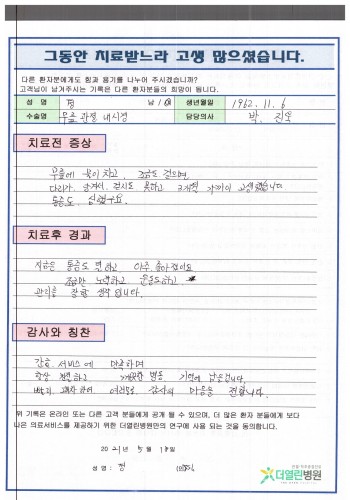 그동안 치료받느라 고생 많으셨습니다.
다른 환자분에게도 힘과 용기를 나누어 주시겠습니까?
고객님이 남겨주시는 기록은 다른 환자분들의 희망이 됩니다.
성 명 정 남 / 여 생년월일 1962. 11. 6
수술명 무릎 관절 내시경 담당의사 박. 진욱
치료전 증상
무릎에 물이 차고, 조금도 걸으면,
다리가 당겨서 걷지도 못하고 2개월 가까이 고생했습니다
통증도 심했구요.
치료후 경과
지금은 통증도 덜하고 아주 좋아졌어요
조금만 노력하고 운동도하고
관리를 잘할 생각입니다.
감사와 칭찬
간호 서비스에 만족하며
항상 친절하고 깨끗한 병동, 기억에 남을겁니다.
감사의 마음을 전합니다.
위 기록은 온라인 또는 다른 고객 분들에게 공개 될 수 있으며, 더 많은 환자 분들에게 보다
나은 의료서비스를 제공하기 위한 더열린병원만의 연구에 사용 되는 것을 동의합니다.
2021년 5월 18일
성 명 : 정 (인)
더열린병원